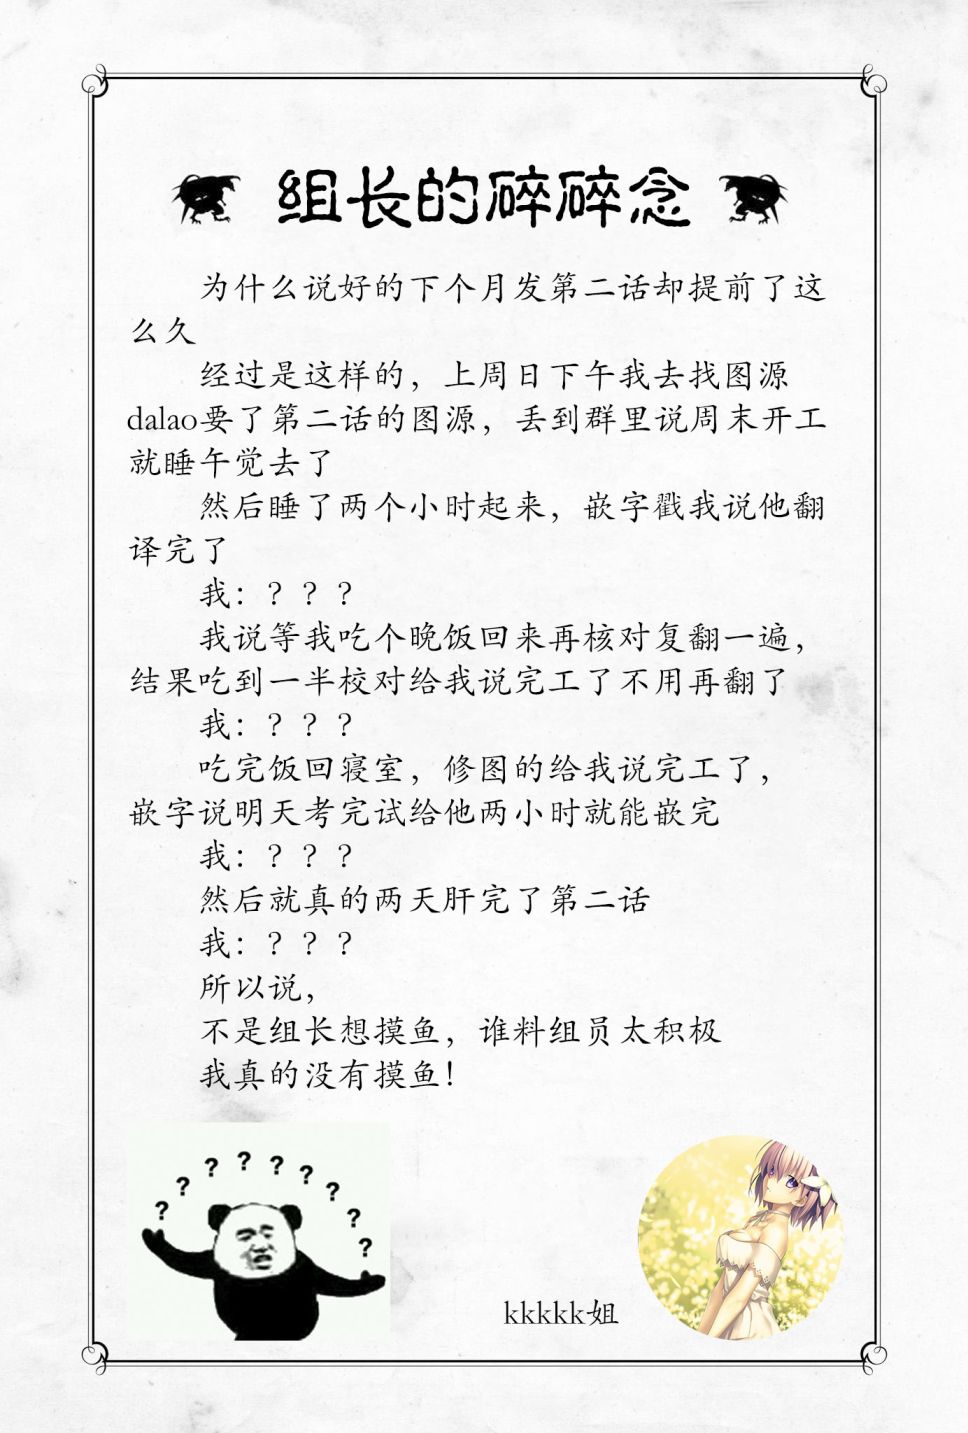 组长的碎碎念
为什么说好的下个月发第二话却提前了这
么久
经过是这样的，上周日下午我去找图源
dalao要了第二话的图源，丢到群里说周末开工
就睡午觉去了
然后睡了两个小时起来，嵌字戳我说他翻
译完了
我：？？？
我说等我吃个晚饭回来再核对复翻一遍，
结果吃到一半校对给我说完工了不用再翻了
我：？？？
吃完饭回寝室，修图的给我说完工了，
嵌字说明天考完试给他两小时就能嵌完
我：？？？
然后就真的两天肝完了第二话
我：？？？
所以说，
不是组长想摸鱼，谁料组员太积极
我真的没有摸鱼！
? ? ? ? ? ? ? ? ?
kkkkk姐